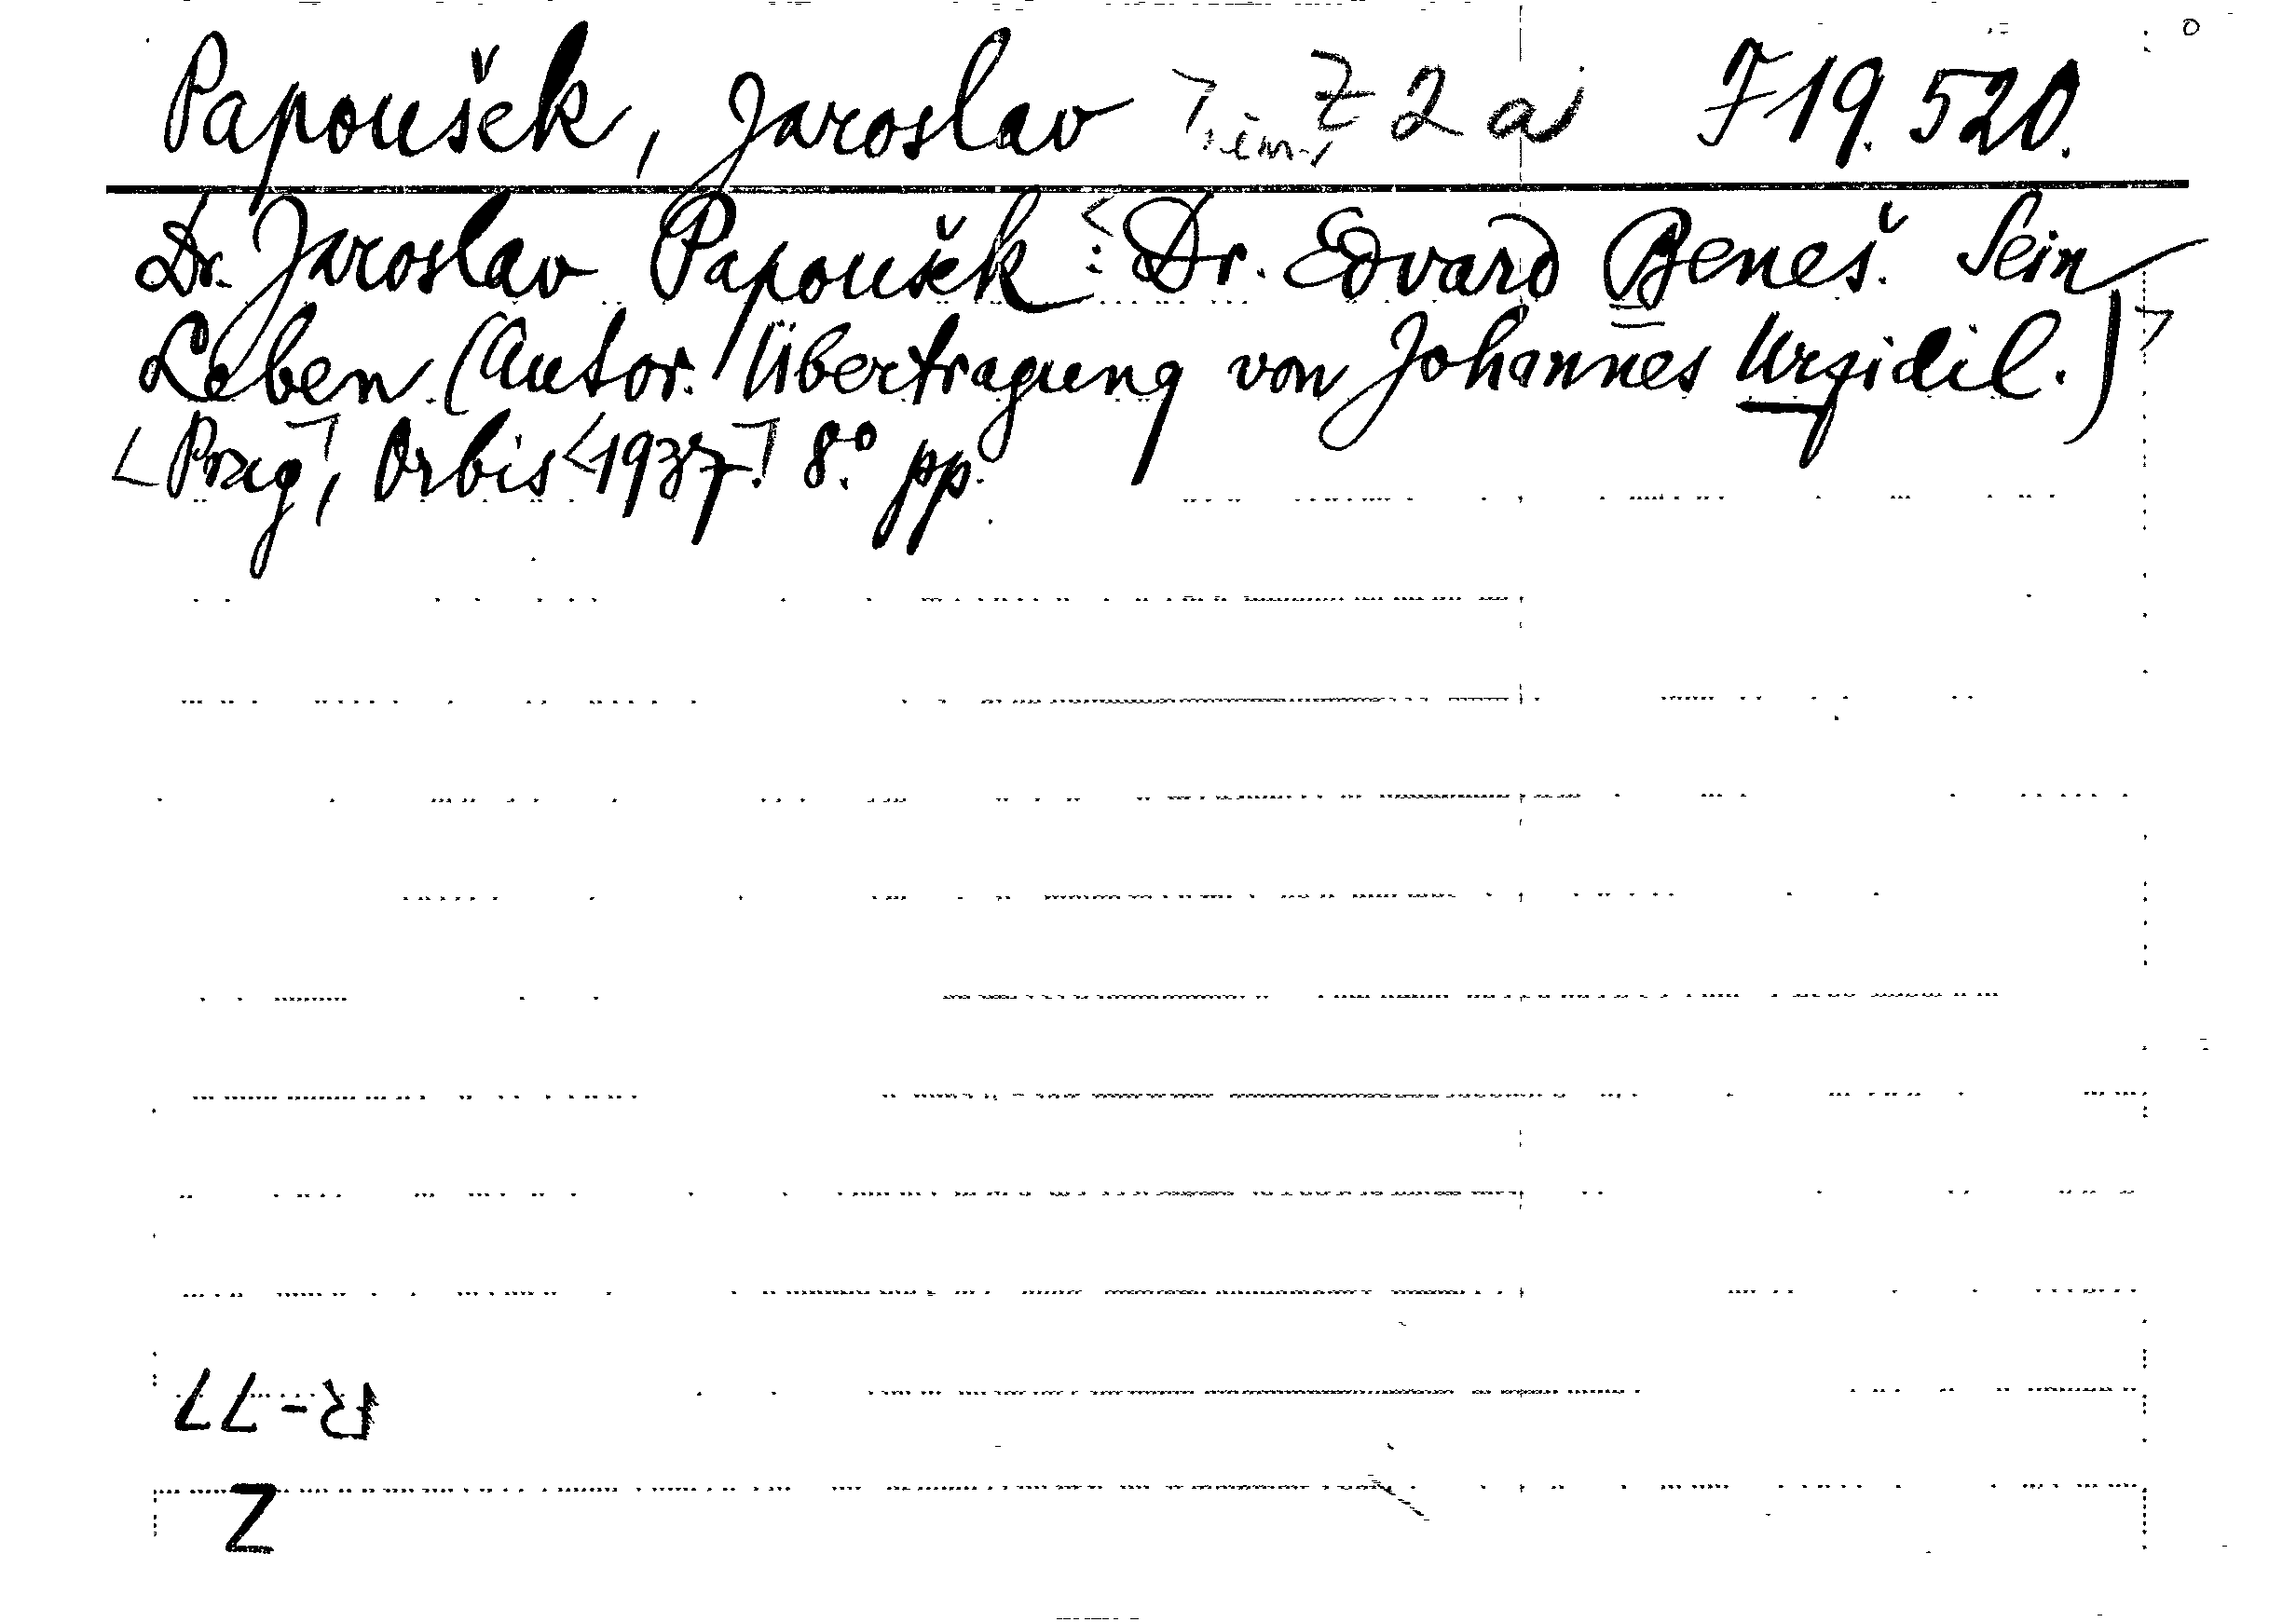 Papoušek, Jaroslav Z 2 a F 19.520.
Dr. Jaroslav Papoušek: Dr. Edvard Beneš. Sein
Leben. (Autor. Übertragung von Johannes Urzidil.)
<Prag>, Orbis <1937>. 8° pp.
R-77
Z